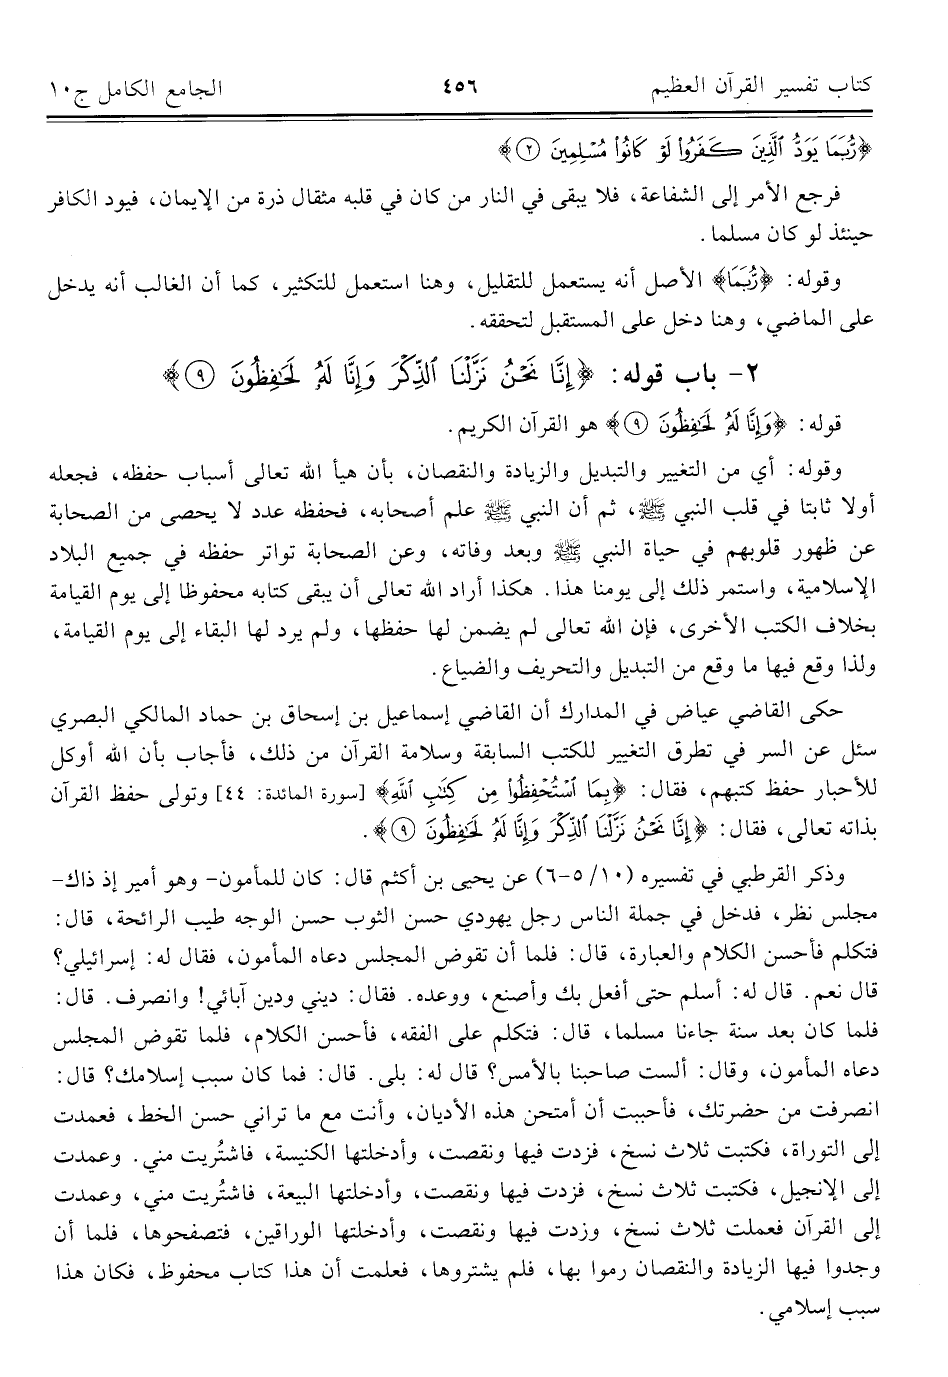 كتاب تفسير القرآن العظيم ٤٥٦ الجامع الكامل ج١٠
﴿رُّبَمَا يَوَدُّ ٱلَّذِينَ كَفَرُوا۟ لَوْ كَانُوا۟ مُسْلِمِينَ ٢﴾
فرجع الأمر إلى الشفاعة، فلا يبقى في النار من كان في قلبه مثقال ذرة من الإيمان، فيود الكافر
حينئذ لو كان مسلما.
وقوله: ﴿رُّبَمَا﴾ الأصل أنه يستعمل للتقليل، وهنا استعمل للتكثير، كما أن الغالب أنه يدخل
على الماضي، وهنا دخل على المستقبل لتحققه.
٢- باب قوله: ﴿إِنَّا نَحْنُ نَزَّلْنَا ٱلذِّكْرَ وَإِنَّا لَهُۥ لَحَٰفِظُونَ ٩﴾
قوله: ﴿وَإِنَّا لَهُۥ لَحَٰفِظُونَ ٩﴾ هو القرآن الكريم.
وقوله: أي من التغيير والتبديل والزيادة والنقصان، بأن هيأ الله تعالى أسباب حفظه، فجعله
أولا ثابتا في قلب النبي ﷺ، ثم أن النبي ﷺ علم أصحابه، فحفظه عدد لا يحصى من الصحابة
عن ظهور قلوبهم في حياة النبي ﷺ وبعد وفاته، وعن الصحابة تواتر حفظه في جميع البلاد
الإسلامية، واستمر ذلك إلى يومنا هذا. هكذا أراد الله تعالى أن يبقى كتابه محفوظا إلى يوم القيامة
بخلاف الكتب الأخرى، فإن الله تعالى لم يضمن لها حفظها، ولم يرد لها البقاء إلى يوم القيامة،
ولذا وقع فيها ما وقع من التبديل والتحريف والضياع.
حكى القاضي عياض في المدارك أن القاضي إسماعيل بن إسحاق بن حماد المالكي البصري
سئل عن السر في تطرق التغيير للكتب السابقة وسلامة القرآن من ذلك، فأجاب بأن الله أوكل
للأحبار حفظ كتبهم، فقال: ﴿بِمَا ٱسْتُحْفِظُوا۟ مِن كِتَٰبِ ٱللَّهِ﴾ [سورة المائدة: ٤٤] وتولى حفظ القرآن
بذاته تعالى، فقال: ﴿إِنَّا نَحْنُ نَزَّلْنَا ٱلذِّكْرَ وَإِنَّا لَهُۥ لَحَٰفِظُونَ ٩﴾.
وذكر القرطبي في تفسيره (١٠/ ٥-٦) عن يحيى بن أكثم قال: كان للمأمون- وهو أمير إذ ذاك-
مجلس نظر، فدخل في جملة الناس رجل يهودي حسن الثوب حسن الوجه طيب الرائحة، قال:
فتكلم فأحسن الكلام والعبارة، قال: فلما أن تقوض المجلس دعاه المأمون، فقال له: إسرائيلي؟
قال نعم. قال له: أسلم حتى أفعل بك وأصنع، ووعده. فقال: ديني ودين آبائي! وانصرف. قال:
فلما كان بعد سنة جاءنا مسلما، قال: فتكلم على الفقه، فأحسن الكلام، فلما تقوض المجلس
دعاه المأمون، وقال: ألست صاحبنا بالأمس؟ قال له: بلى. قال: فما كان سبب إسلامك؟ قال:
انصرفت من حضرتك، فأحببت أن أمتحن هذه الأديان، وأنت مع ما تراني حسن الخط، فعمدت
إلى التوراة، فكتبت ثلاث نسخ، فزدت فيها ونقصت، وأدخلتها الكنيسة، فاشتُريت مني. وعمدت
إلى الإنجيل، فكتبت ثلاث نسخ، فزدت فيها ونقصت، وأدخلتها البيعة، فاشتُريت مني، وعمدت
إلى القرآن فعملت ثلاث نسخ، وزدت فيها ونقصت، وأدخلتها الوراقين، فتصفحوها، فلما أن
وجدوا فيها الزيادة والنقصان رموا بها، فلم يشتروها، فعلمت أن هذا كتاب محفوظ، فكان هذا
سبب إسلامي.